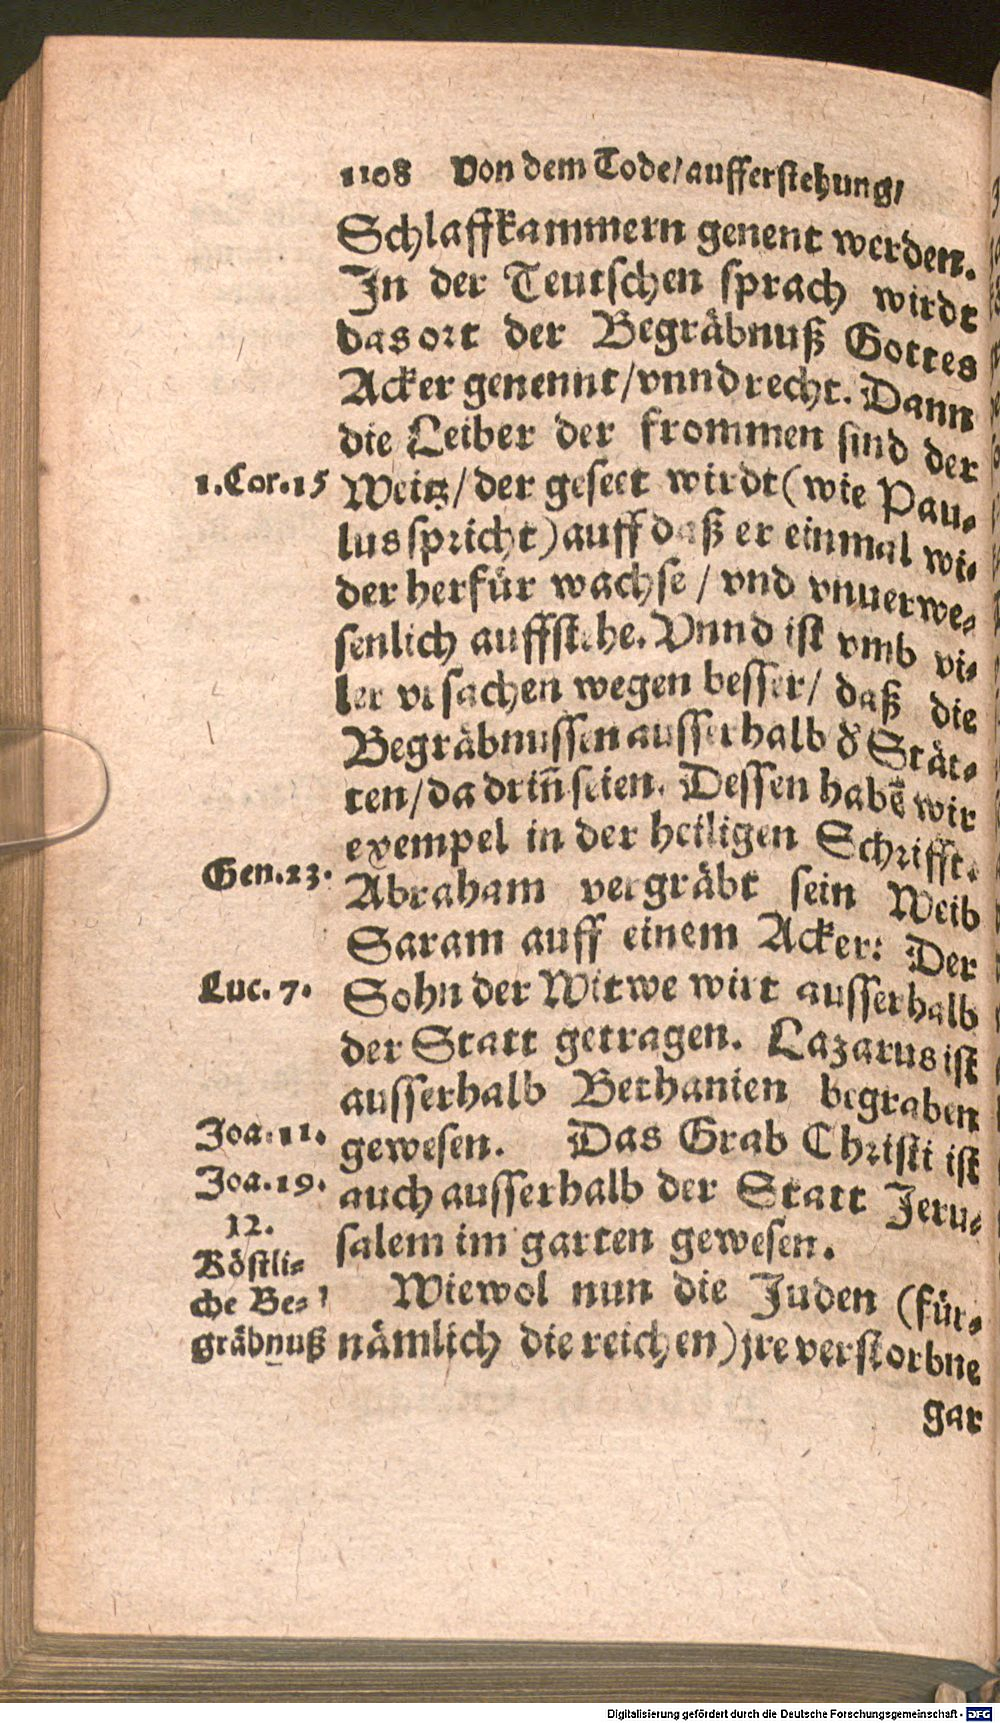 1108 Von dem Tode/aufferstehung/
Schlaffkammern genent werden.
In der Teutschen sprach wirdt
das ort der Begräbnuß Gottes
Acker genennt/vnnd recht. Dann
die Leiber der frommen sind der
1.Cor.15
Weitz/der geseet wirdt(wie Pau-
lus spricht)auff daß er einmal wi-
der herfür wachse/vnd vnuerwe-
senlich auffstehe. Vnnd ist vmb vi-
ler vrsachen wegen besser/ daß die
Begräbnussen ausserhalb d̕ Stät-
ten/da drin̄ seien. Dessen habē wir
exempel in der heiligen Schrifft.
Gen.23.
Abraham vergräbt sein Weib
Saram auff einem Acker: Der
Luc. 7.
Sohn der Witwe wirt ausserhalb
der Statt getragen. Lazarus ist
ausserhalb Bethanien begraben
Joa.11.
gewesen. Das Grab Christi ist
Joa.19.
auch ausserhalb der Statt Jeru-
salem im garten gewesen.
12.
Köstli-
che Be-
gräbnuß
Wiewol nun die Juden (für-
nämlich die reichen)jre verstorbne
gar
Digitalisierung gefördert durch die Deutsche Forschungsgemeinschaft - DFG